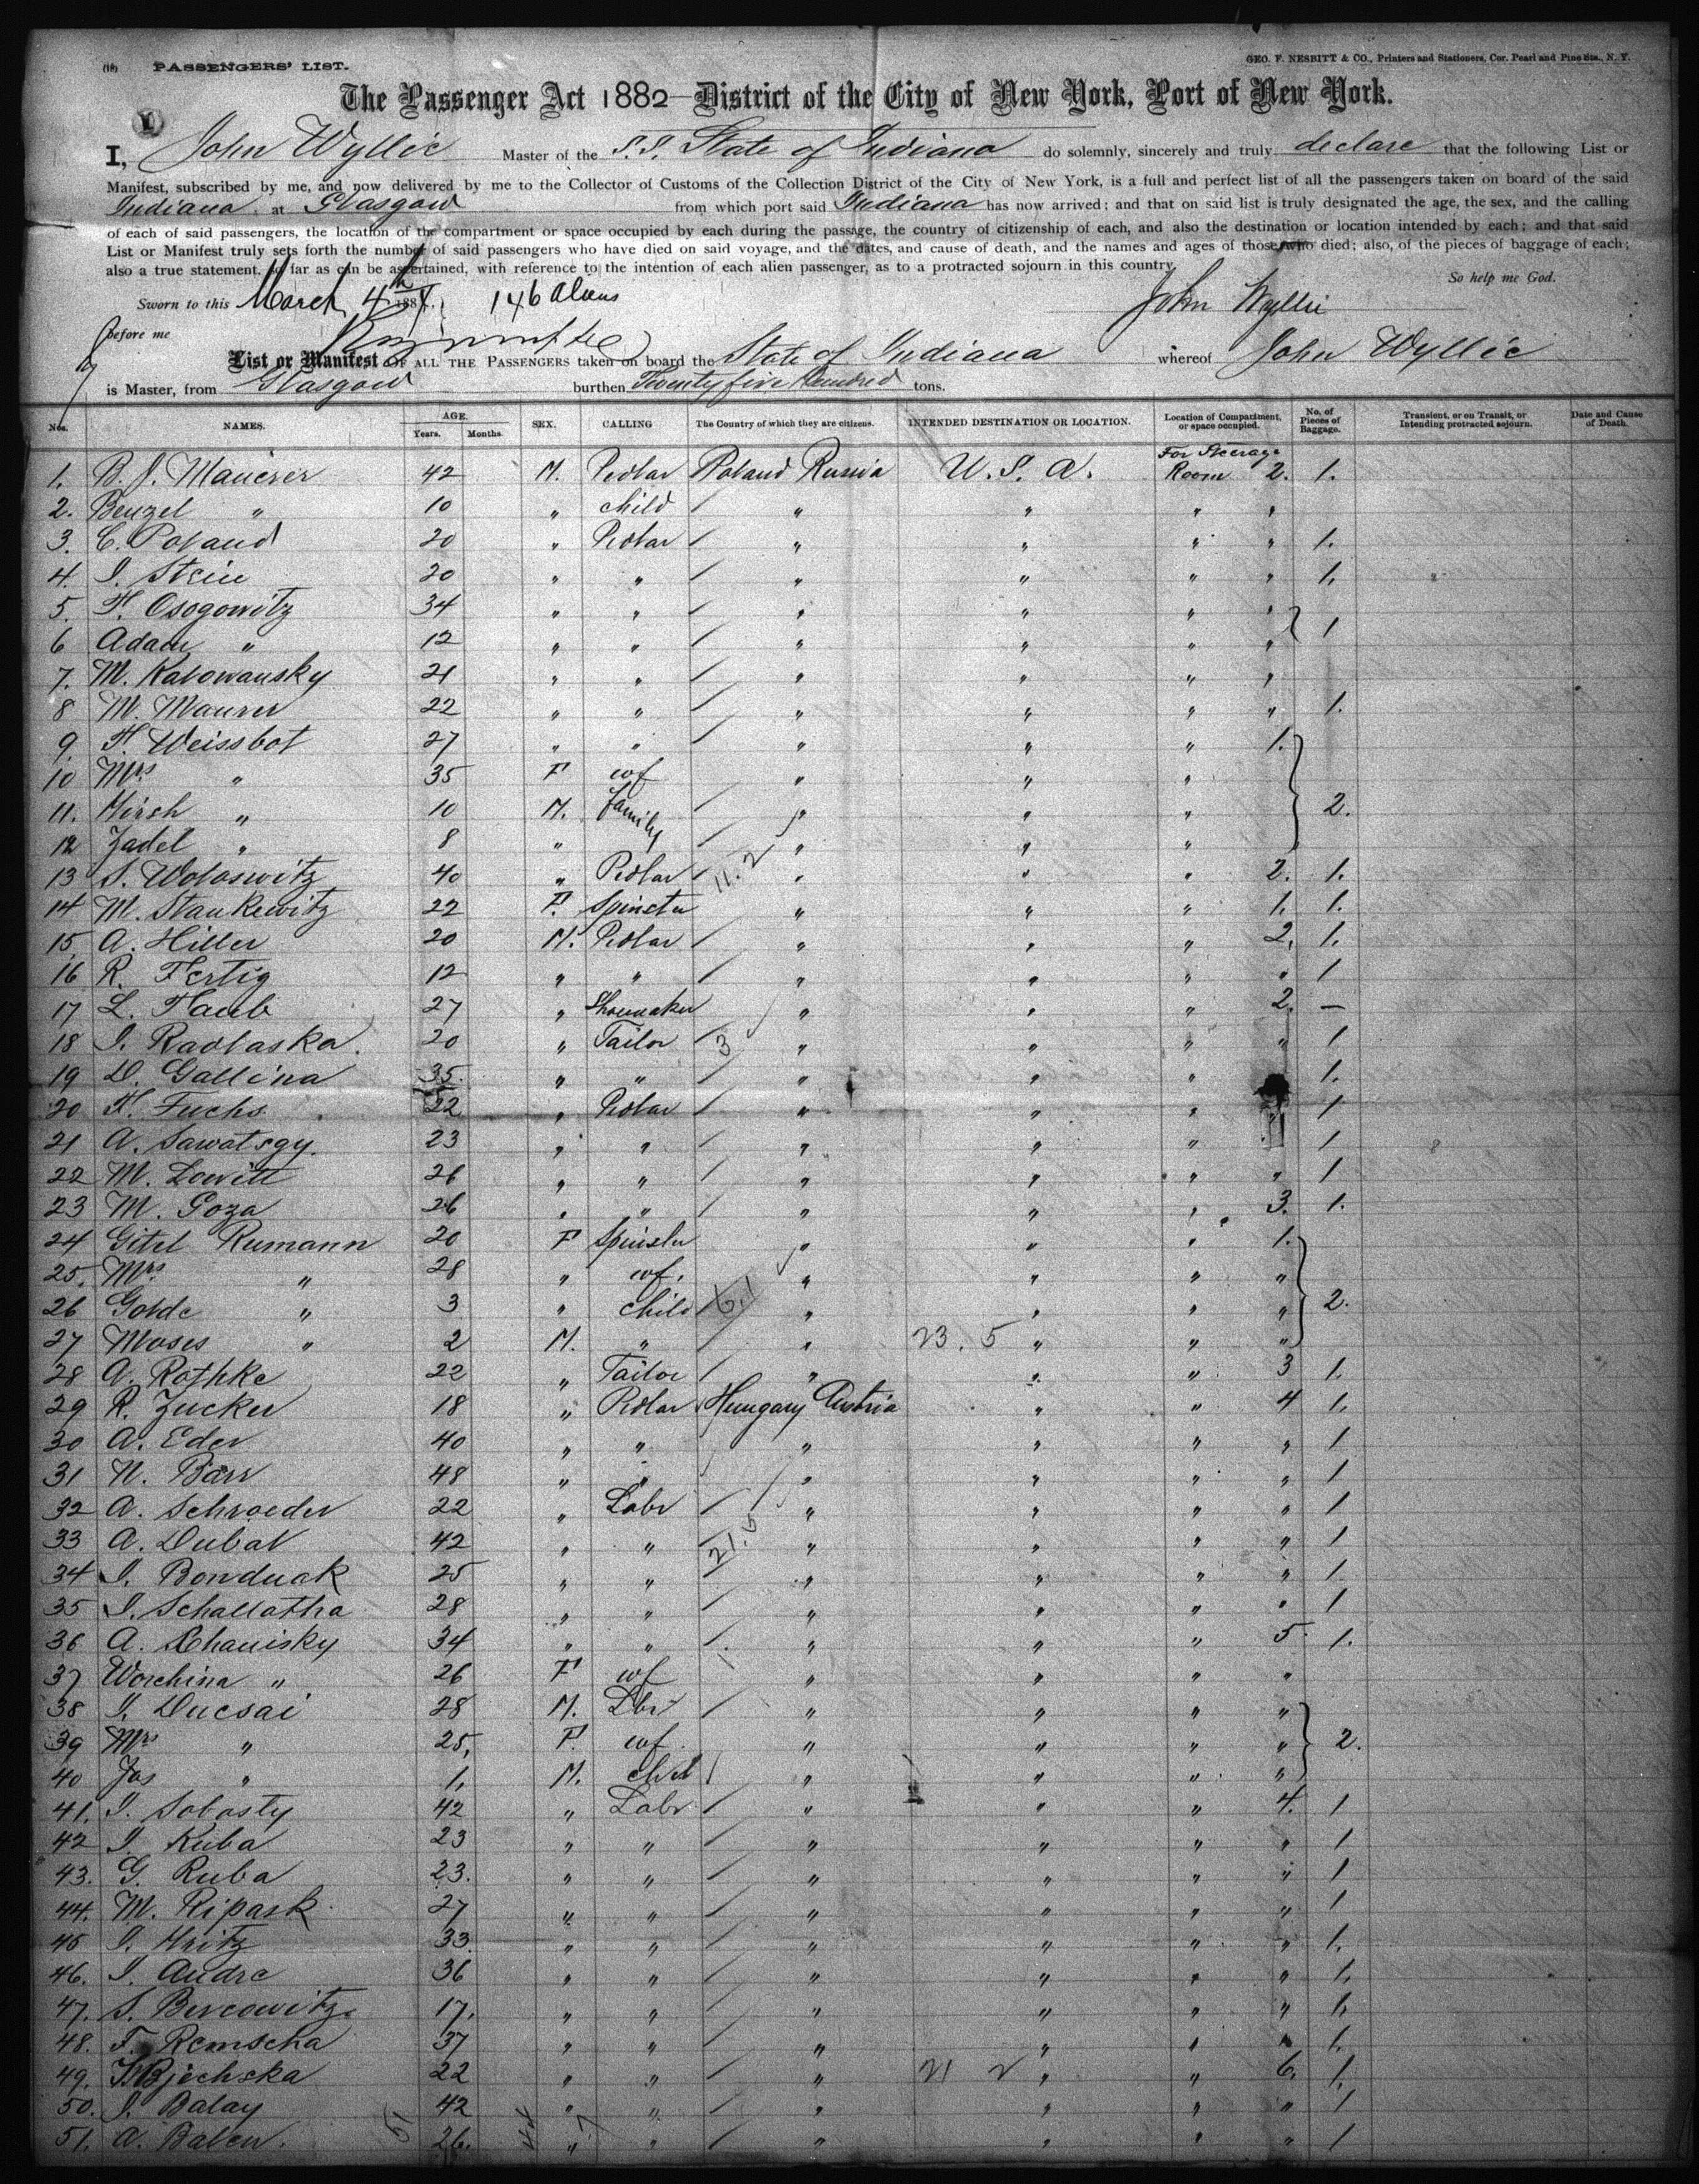 (18) PASSENGERS' LIST.
GEO. F. NESBITT & CO., Printers and Stationers, Cor. Pearl and Pine Sts., N. Y.
The Passenger Act 1882—District of the City of New York, Port of New York.
I, John Wyllie Master of the S.S. State of Indiana do solemnly, sincerely and truly declare that the following List or
Manifest, subscribed by me, and now delivered by me to the Collector of Customs of the Collection District of the City of New York, is a full and perfect list of all the passengers taken on board of the said
Indiana at Glasgow from which port said Indiana has now arrived; and that on said list is truly designated the age, the sex, and the calling
of each of said passengers, the location of the compartment or space occupied by each during the passage, the country of citizenship of each, and also the destination or location intended by each; and that said
List or Manifest truly sets forth the number of said passengers who have died on said voyage, and the dates, and cause of death, and the names and ages of those who died; also, of the pieces of baggage of each;
also a true statement, so far as can be ascertained, with reference to the intention of each alien passenger, as to a protracted sojourn in this country.
So help me God.
Sworn to this March 4th 188 146 Aliens John Wyllie
before me
List or Manifest OF ALL THE PASSENGERS taken on board the State of Indiana whereof John Wyllie
is Master, from Glasgow burthen Twenty five hundred tons.
Nos. NAMES. AGE. Years. Months. SEX. CALLING The Country of which they are citizens. INTENDED DESTINATION OR LOCATION. Location of Compartment, or space occupied. No. of Pieces of Baggage. Transient, or on Transit, or Intending protracted sojourn. Date and Cause of Death.
For Steerage
1. B. J. Mauerer 42 M. Pedlar Poland Russia U. S. A. Room 2. 1.
2. Benzel " 10 " child " " " "
3. C. Poland 20 " Pedlar " " " " 1.
4. I. Stein 20 " " " " " " 1.
5. H. Osogowitz 34 " " " " " "
6 Adam " 12 " " " " " " 1
7. M. Kalowansky 21 " " " " " "
8 M. Maurer 22 " " " " " " 1.
9. H. Weissbot 27 " " " " " 1.
10 Mrs " 35 F wf " " "
11. Hirsh " 10 M. family " " " 2.
12 Jadel " 8 " " " "
13 S. Woloswitz 40 " Pedlar " " " 2. 1.
14 M. Stankewitz 22 F. Spinster " " " 1. 1.
15 A. Hiller 20 M. Pedlar " " " 2. 1.
16 R. Fertig 12 " " " " " " 1
17 L. Haub 27 " Shoemaker " " " 2. —
18 I. Radlaska. 20 " Tailor " " " " 1
19 D. Gallina 35. " " " " " 1.
20 H. Fuchs 22 " Pedlar " " " " 1
21 A. Sawatsgy. 23 " " " " " 1
22 M. Lowitt 26 " " " " " " 1
23 M. Goza 26 " " " " " 3. 1.
24 Gitel Rumann 20 F Spinster " " " 1.
25. Mrs " 28 " wf. " " " "
26 Golde " 3 " child " " " " 2.
27 Moses " 2 M. " " 23. 5 " " "
28 A. Rothke 22 " Tailor " " " 3 1.
29 R. Zucker 18 " Pedlar Hungary Austria " " 4 1.
30 A. Eder 40 " " " " " " 1
31 N. Barr 48 " " " " " " 1
32 A. Schroeder 22 " Labr " " " " 1
33 A. Dubal 42 " " " " " " 1
34 I. Bonduak 25 " " " " " " 1.
35 I. Schallatha 28 " " " " " " 1
36 A. Rhanisky 34 " " " " " 5. 1.
37 Worchina " 26 F wf " " " "
38 I. Ducsai 28 M. Lbr " " " "
39 Mrs " 25, F. wf. " " " " 2.
40 Jas " 1, M. child " " " "
41. I. Sobosty 42 " Labr " " " 4. 1
42 I. Kuba 23 " " " " " " 1
43. G. Ruba 23. " " " " " " 1
44. M. Ripask 27 " " " " " " 1
45 I. Hritz 33. " " " " " " 1.
46. I. Andre 36 " " " " " " 1.
47. S. Bercowitz. 17. " " " " " " 1.
48. F. Remscha 37 " " " " " " 1.
49. Bjechska 22 " " " 21 2 " " 6. 1.
50. I. Balay 42 " " " " " " 1
51. A. Balen. 26. " " " " " " 1